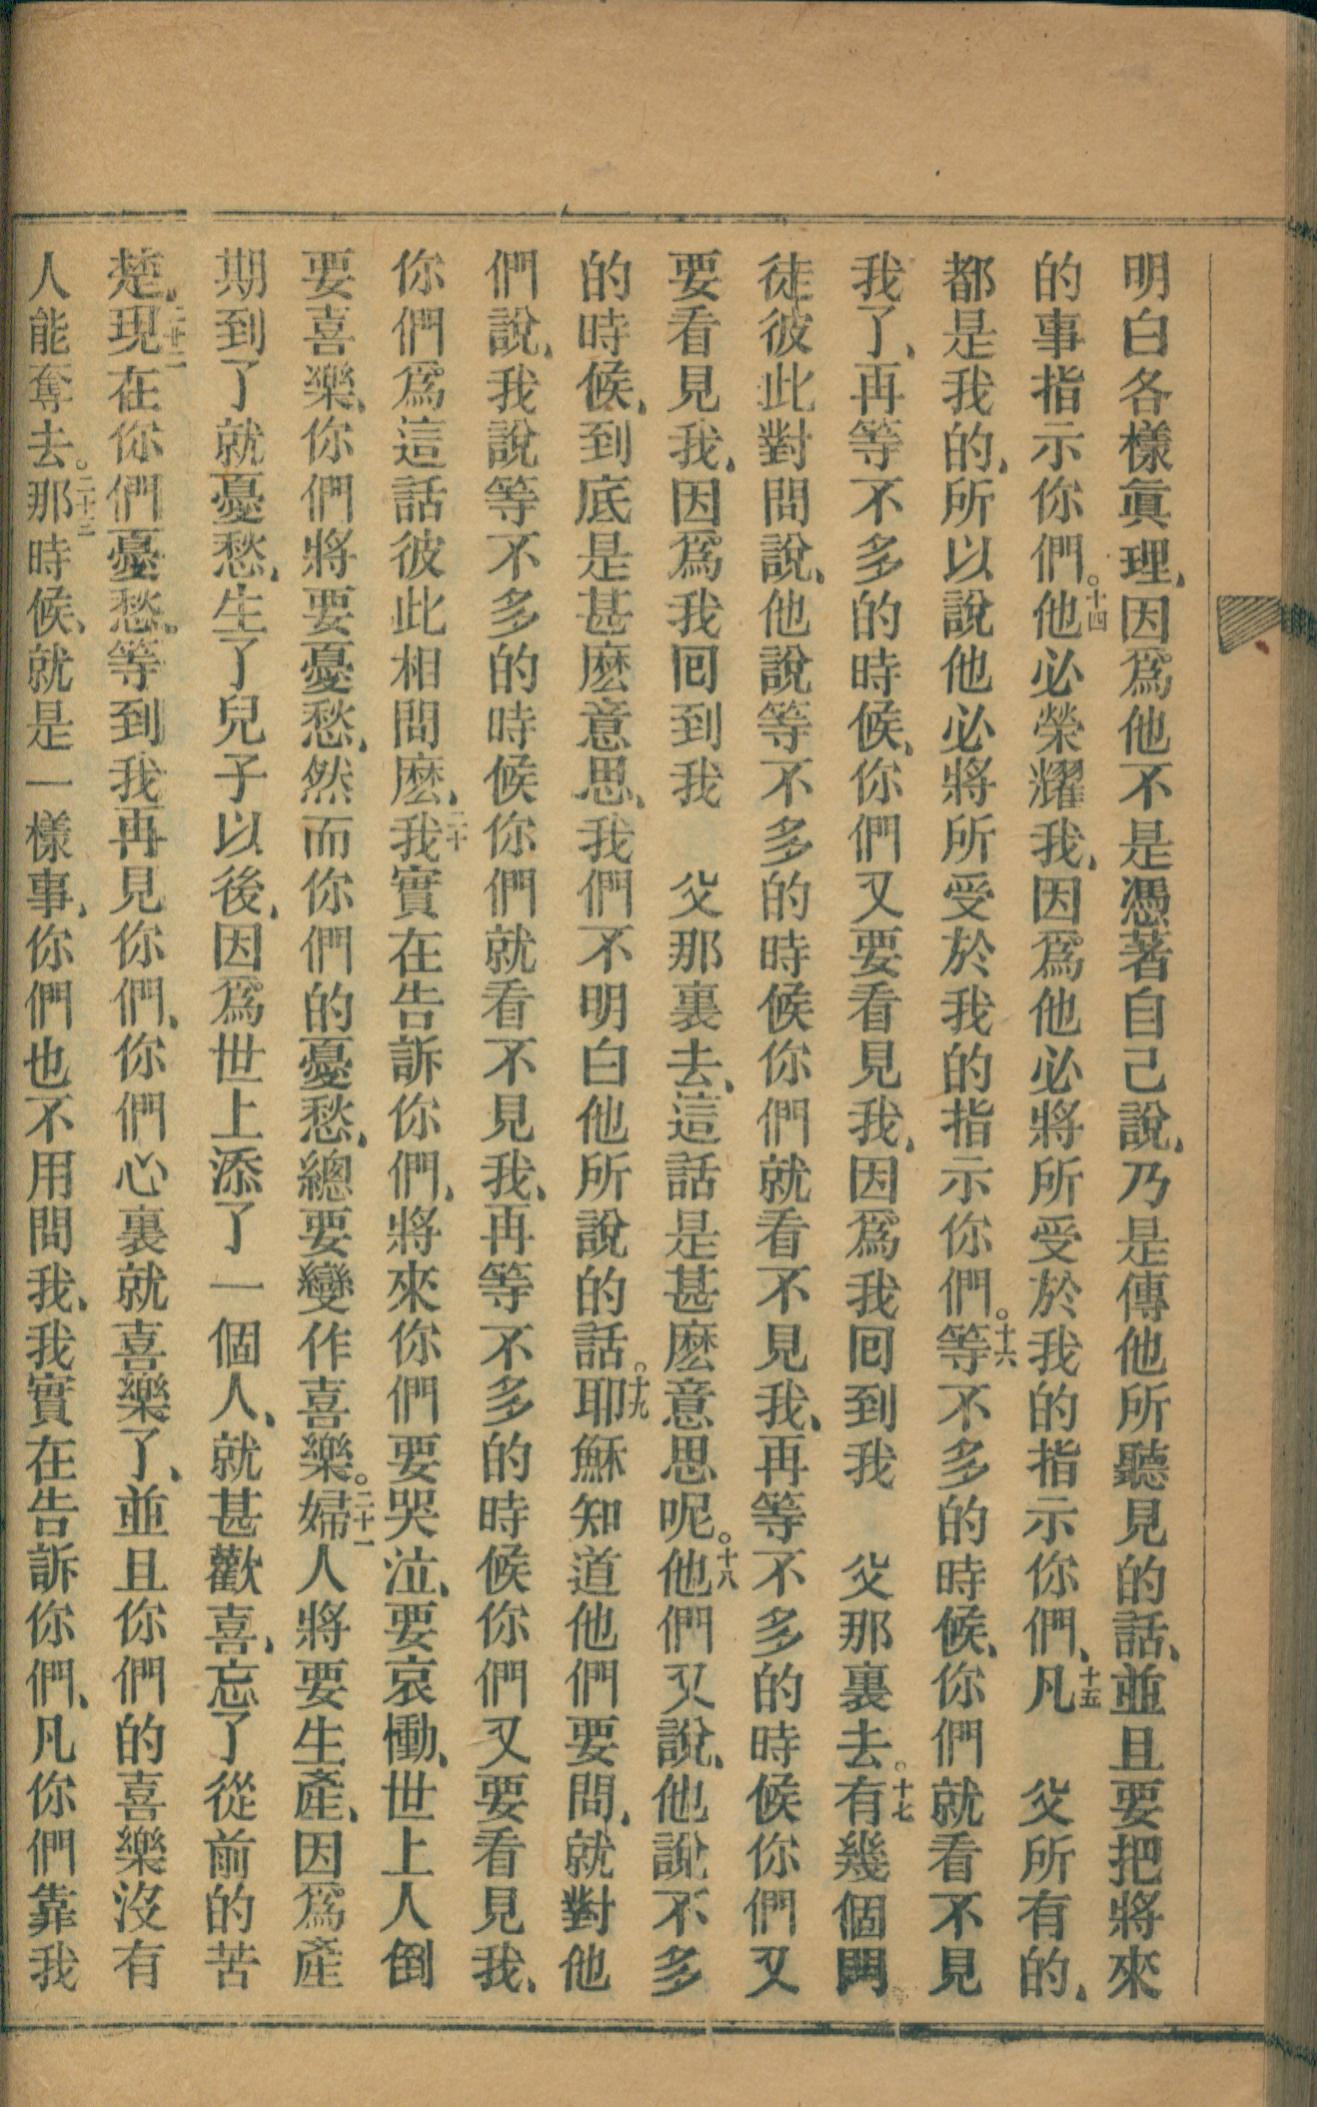 明白各樣眞理、因爲他不是憑著自己說、乃是傳他所聽見的話、並且要把將來
的事指示你們。十四他必榮耀我、因爲他必將所受於我的指示你們、十五凡　父所有的、
都是我的、所以說他必將所受於我的指示你們。十六等不多的時候、你們就看不見
我了、再等不多的時候、你們又要看見我、因爲我囘到我　父那裏去。十七有幾個門
徒彼此對問說、他說等不多的時候你們就看不見我、再等不多的時候你們又
要看見我、因爲我囘到我　父那裏去、這話是甚麽意思呢。十八他們又說、他說不多
的時候、到底是甚麽意思、我們不明白他所說的話。十九耶穌知道他們要問、就對他
們說、我說等不多的時候你們就看不見我、再等不多的時候你們又要看見我、
你們爲這話彼此相問麽、二十我實在告訴你們、將來你們要哭泣、要哀慟、世上人倒
要喜樂、你們將要憂愁、然而你們的憂愁、總要變作喜樂。二十一婦人將要生產、因爲產
期到了就憂愁、生了兒子以後、因爲世上添了一個人、就甚歡喜、忘了從前的苦
楚、二十二現在你們憂愁、等到我再見你們、你們心裏就喜樂了、並且你們的喜樂沒有
人能奪去。二十三那時候、就是一樣事、你們也不用問我、我實在告訴你們、凡你們靠我